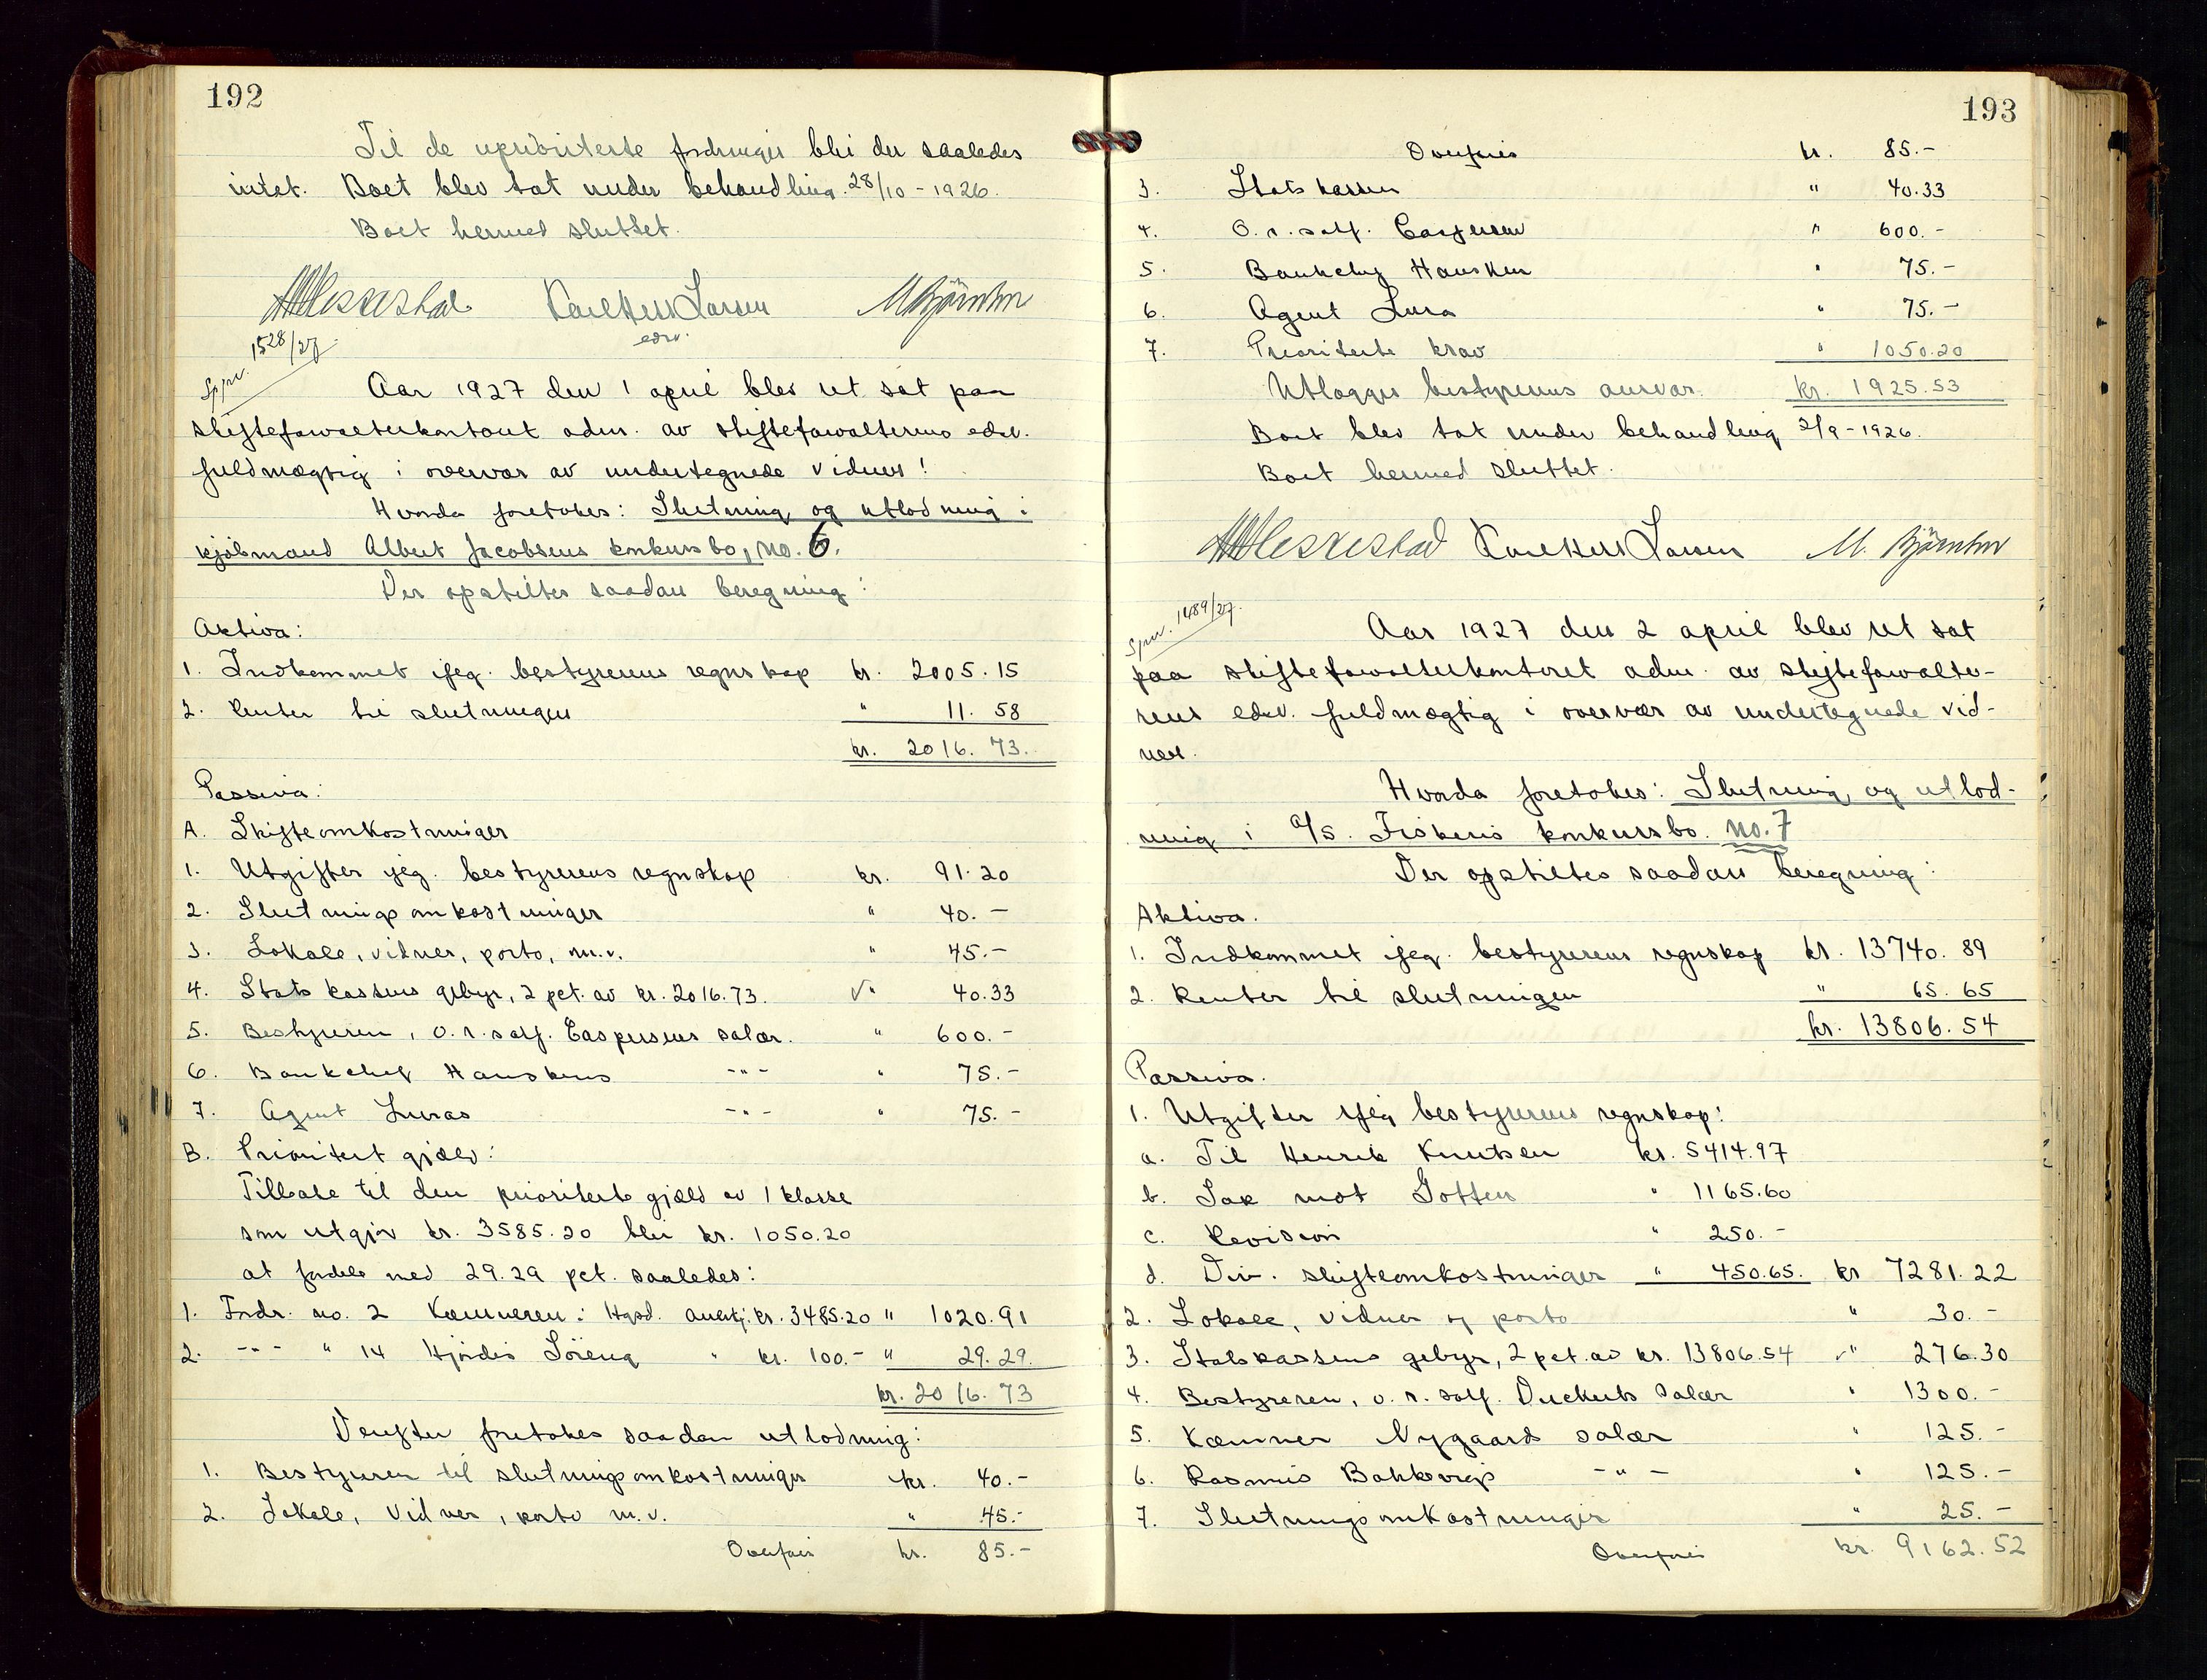 192
Til de uprioriterte fordringer blir der saaledes
intet. Boet blev tat under behandling 28/10 - 1926.
Boet hermed sluttet.
Karl Herb Larsen M Bjørnbu
edsv.
1528/27
Aar 1927 den 1 april blev ret sat paa
skifteforvalterkontoret adm. av skifteforvalterens edsv.
fuldmægtig i overvær av undertegnede vidner!
Hvorda foretokes: Slutning og utlodning i
kjøbmand Albert Jacobsens konkursbo, no. 6.
Der opstilles saadan beregning:
Aktiva:
1. Indkommet ifeg. bestyrerens regnskap kr. 2005.15
2. Renter til slutningen " 11.58
kr. 2016.73.
Passiva:
A. Skifteomkostninger
1. Utgifter ifeg. bestyrerens regnskap kr. 91.20
2. Slutningsomkostninger " 40.-
3. Lokale, vidner, porto, m.v. " 45.-
4. Statskassens gebyr, 2 pct. av kr. 2016.73. " 40.33
5. Bestyreren, o.r.sakf. Caspersens salær. " 600.-
6. Bankchef Hanskens -"- " 75.-
7. Agent Luras -"- " 75.-
B. Prioritert gjæld:
Tilbake til den prioriterte gjæld av 1 klasse
som utgjør kr. 3585.20 blir kr. 1050.20
at fordele med 29.29 pct. saaledes:
1. Fordr. no. 2 Kæmneren: Hgsd. anerkj. kr. 3485.20 " 1020.91
2. -"- " 14 Hjørdis Söreng " kr. 100.- " 29.29.
kr. 2016.73
Derefter foretokes saadan utlodning:
1. Bestyreren til slutningsomkostninger kr. 40.-
2. Lokale, vidner, porto m.v. " 45.-
Overføres kr. 85.-
193
Overføres kr. 85.-
3. Statskassen " 40.33
4. O.r.sakf. Caspersen " 600.-
5. Bankchef Hansken " 75.-
6. Agent Lura " 75.-
7. Prioriterte krav " 1050.20
Utlægges bestyrerens ansvar. kr. 1925.53
Boet blev tat under behandling 2/9 - 1926.
Boet hermed sluttet.
Karl Herb Larsen M. Bjørnbu
1489/27.
Aar 1927 den 2 april blev ret sat
paa skifteforvalterkontoret adm. av skifteforvalte-
rens edsv. fuldmægtig i overvær av undertegnede vid-
ner.
Hvorda foretokes: Slutning og utlod-
ning i A/S. Fiskeris konkursbo. no. 7
Der opstilles saadan beregning:
Aktiva.
1. Indkommet ifeg. bestyrerens regnskap kr. 13740.89
2. Renter til slutningen " 65.65
kr. 13806.54
Passiva.
1. Utgifter ifeg bestyrerens regnskap:
a. Til Henrik Knutsen kr. 5414.97
b. Sak mot " 1165.60
c. Revision " 250.-
d. Div. skifteomkostninger " 450.65. kr 7281.22
2. Lokale, vidner og porto " 30.-
3. Statskassens gebyr, 2 pct. av kr. 13806.54 " 276.30
4. Bestyreren, o.r.sakf. Duckerts salær " 1300.-
5. Kæmner Nygaards salær " 125.-
6. Rasmus Bakkevigs -"- " 125.-
7. Slutningsomkostninger " 25.-
Overføres kr. 9162.52